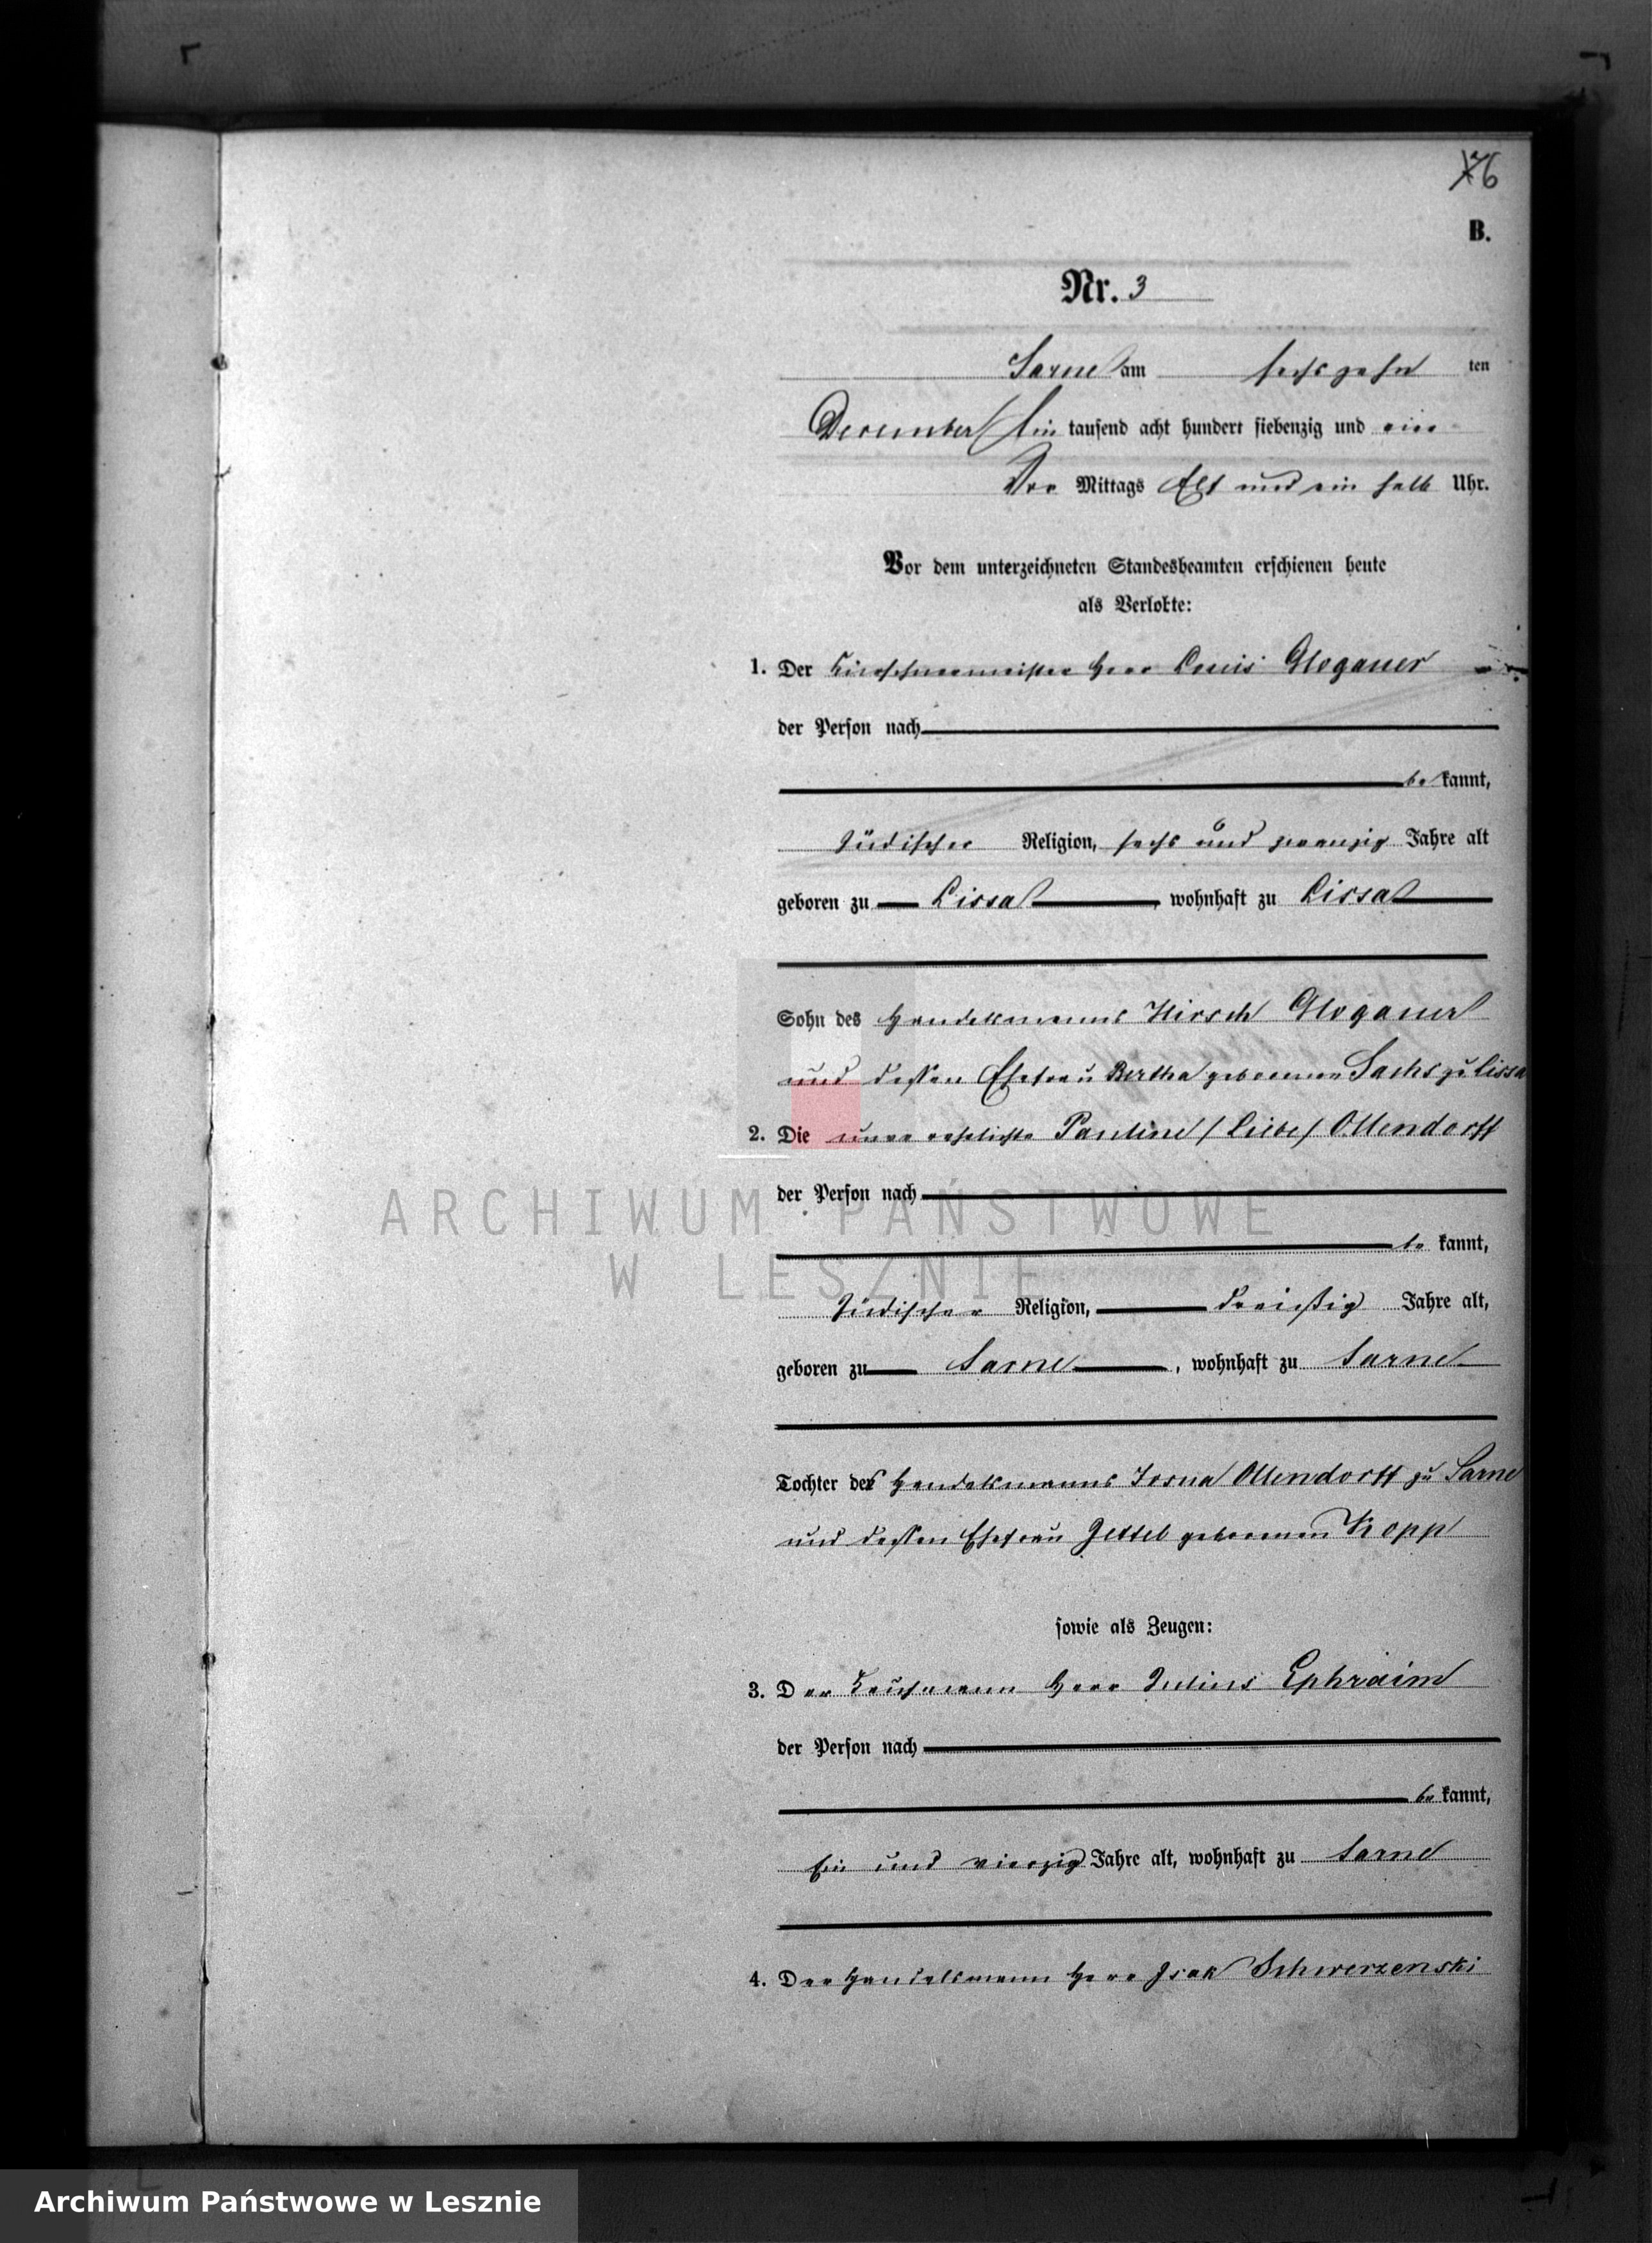 76
B.
Nr. 3
Sarne am sechszehn ten
December Ein tausend acht hundert siebenzig und vier
Vor Mittags Elf und ein halb Uhr.
Vor dem unterzeichneten Standesbeamten erschienen heute
als Verlobte:
1. Der Kürschnermeister Herr Louis Glogauer
der Person nach
be kannt,
jüdischer Religion, sechs und zwanzig Jahre alt
geboren zu Lissa, wohnhaft zu Lissa
Sohn des Handelsmanns Hirsch Glogauer
und dessen Ehefrau Bertha geborenen Sachs zu Lissa
2. Die unverehelichte Pauline / Liebe / Ollendorff
der Person nach
be kannt,
jüdischer Religion, dreißig Jahre alt,
geboren zu Sarne, wohnhaft zu Sarne
Tochter des Handelsmanns Josua Ollendorff zu Sarne
und dessen Ehefrau Zettel geborenen Kopp
sowie als Zeugen:
3. Der Kaufmann Herr Julius Ephraim
der Person nach
be kannt,
Ein und vierzig Jahre alt, wohnhaft zu Sarne
4. Der Handelsmann Herr Isak Schwerzenski
ARCHIWUM PAŃSTWOWE
W LESZNIE
Archiwum Państwowe w Lesznie